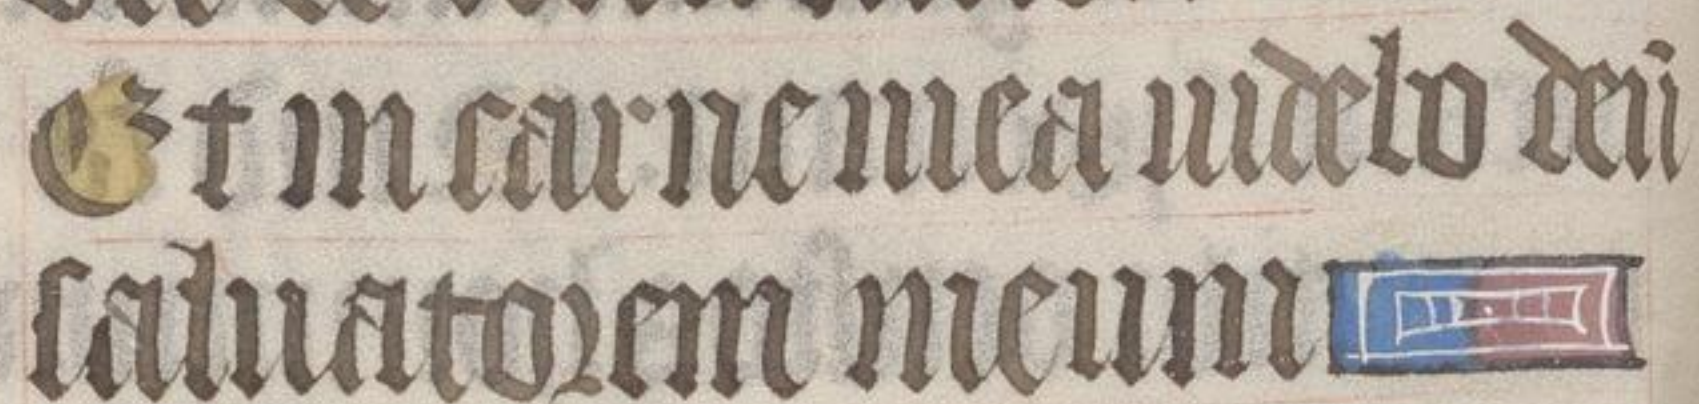 Et in carne mea uidebo deū
saluatorem meum